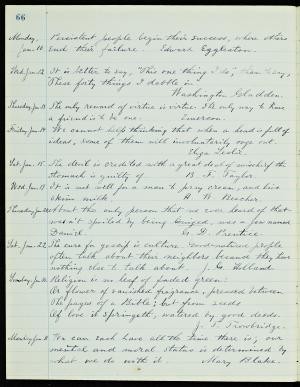 66
Monday, Jan. 10 Persistent people begin their success, where others
end their failure. Edward Eggleston.
Wed. Jan. 12 It is better to say, "This one thing I do", than to say,
These forty things I dabble in.
Washington Gladden.
Thursday Jan. 13 The only reward of virtue is virtue. The only way to have
a friend is to be one. Emerson.
Friday, Jan. 14 We cannot help thinking that when a head is full of
ideas, some of them will involuntarily ooze out.
Eliza Leslie.
Sat. Jan. 15. The devil is credited with a great deal of mischief the
stomach is guilty of. B. F. Taylor.
Wed. Jan. 19 It is not well for a man to pray cream, and live
skim milk. H. W. Beecher.
Thursday, Jan. 20 About the only person that we ever heard of that
wasn't spoiled by being lionized, was a Jew named
Daniel. G. D. Prentice.
Sat. Jan. 22. The cure for gossip is culture. Good-natured people
often talk about their neighbors because they have
nothing else to talk about. J. G. Holland.
Sunday, Jan. Religion is no leaf of faded green,
Or flower of vanished fragrance, pressed between
The pages of a Bible; but from seeds
Of love it springeth, watered by good deeds.
J. T. Trowbridge.
Monday, Jan. You can each have all the time there is; our
mental and moral status is determined by
what we do with it. Mary Blake.